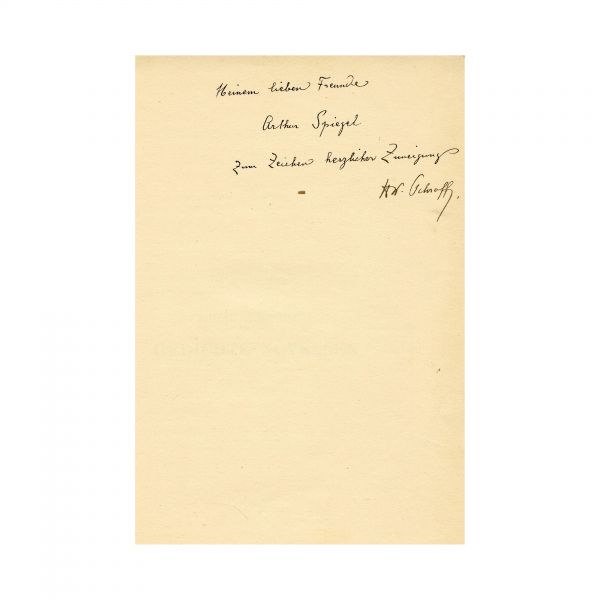 Meinem lieben Freunde
Arthur Spiegel
zum Zeichen herzlicher Zuneigung
HW. Schroff.